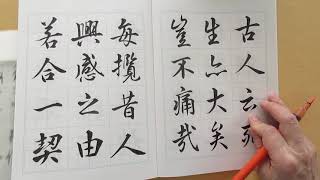 古人云死
生亦大矣
豈不痛哉
每攬昔人
興感之由
若合一契